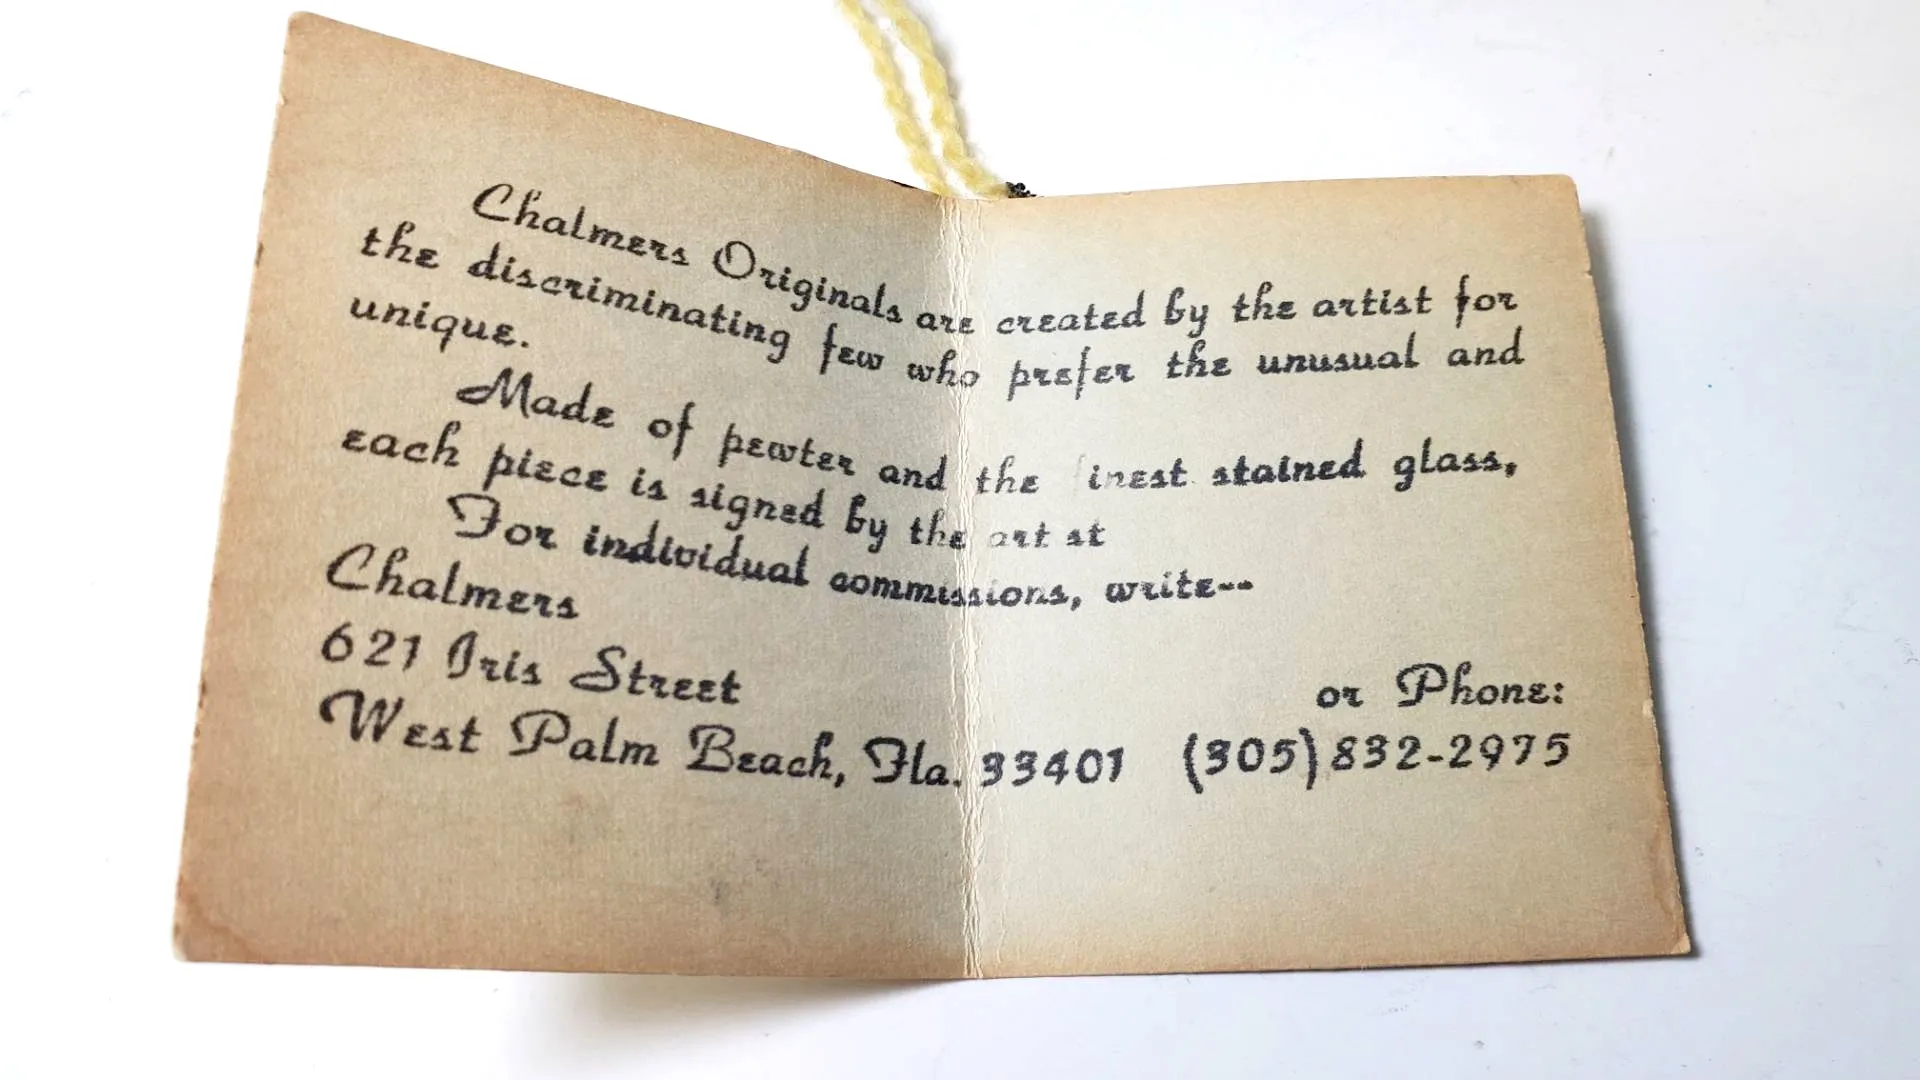 Chalmers Originals are created by the artist for
the discriminating few who prefer the unusual and
unique.
Made of pewter and the finest stained glass,
each piece is signed by the art st
For individual commissions, write--
Chalmers
621 Iris Street
or Phone:
West Palm Beach, Fla. 33401 (305) 832-2975